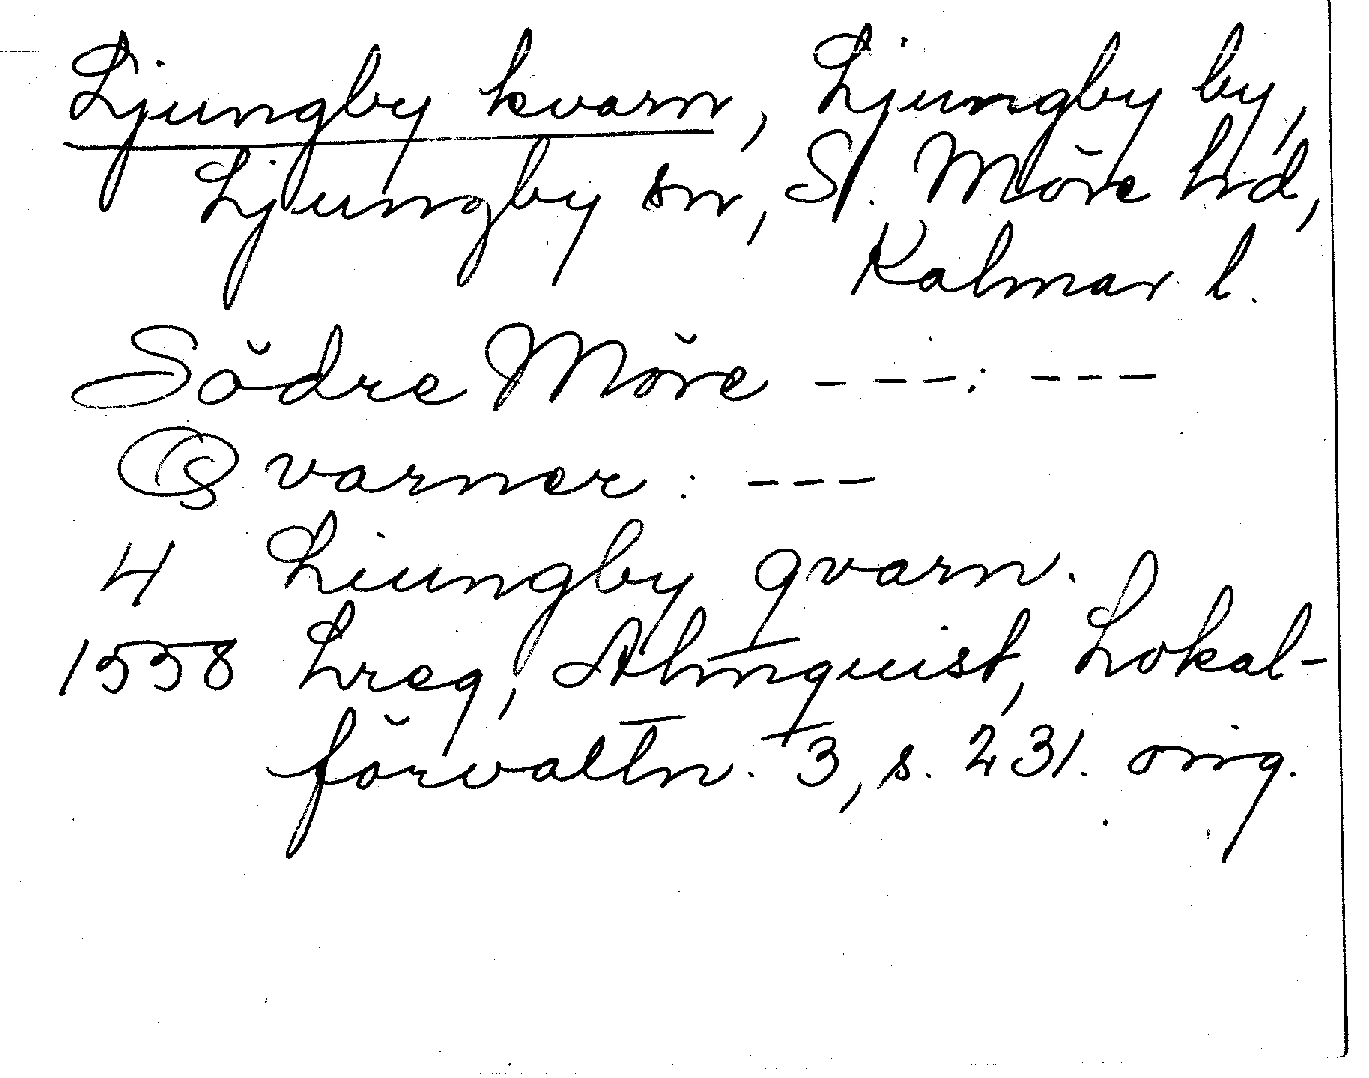 Ljungby kvarn, Ljungby by,
Ljungby sn, S. Möre hd,
Kalmar l.
Södre Möre - - - -: - - -
Qvarner: - - -
4 Liungby qvarn.
1558 Lreg, Almquist, Lokal-
förvaltn. 3, s. 231. orig.